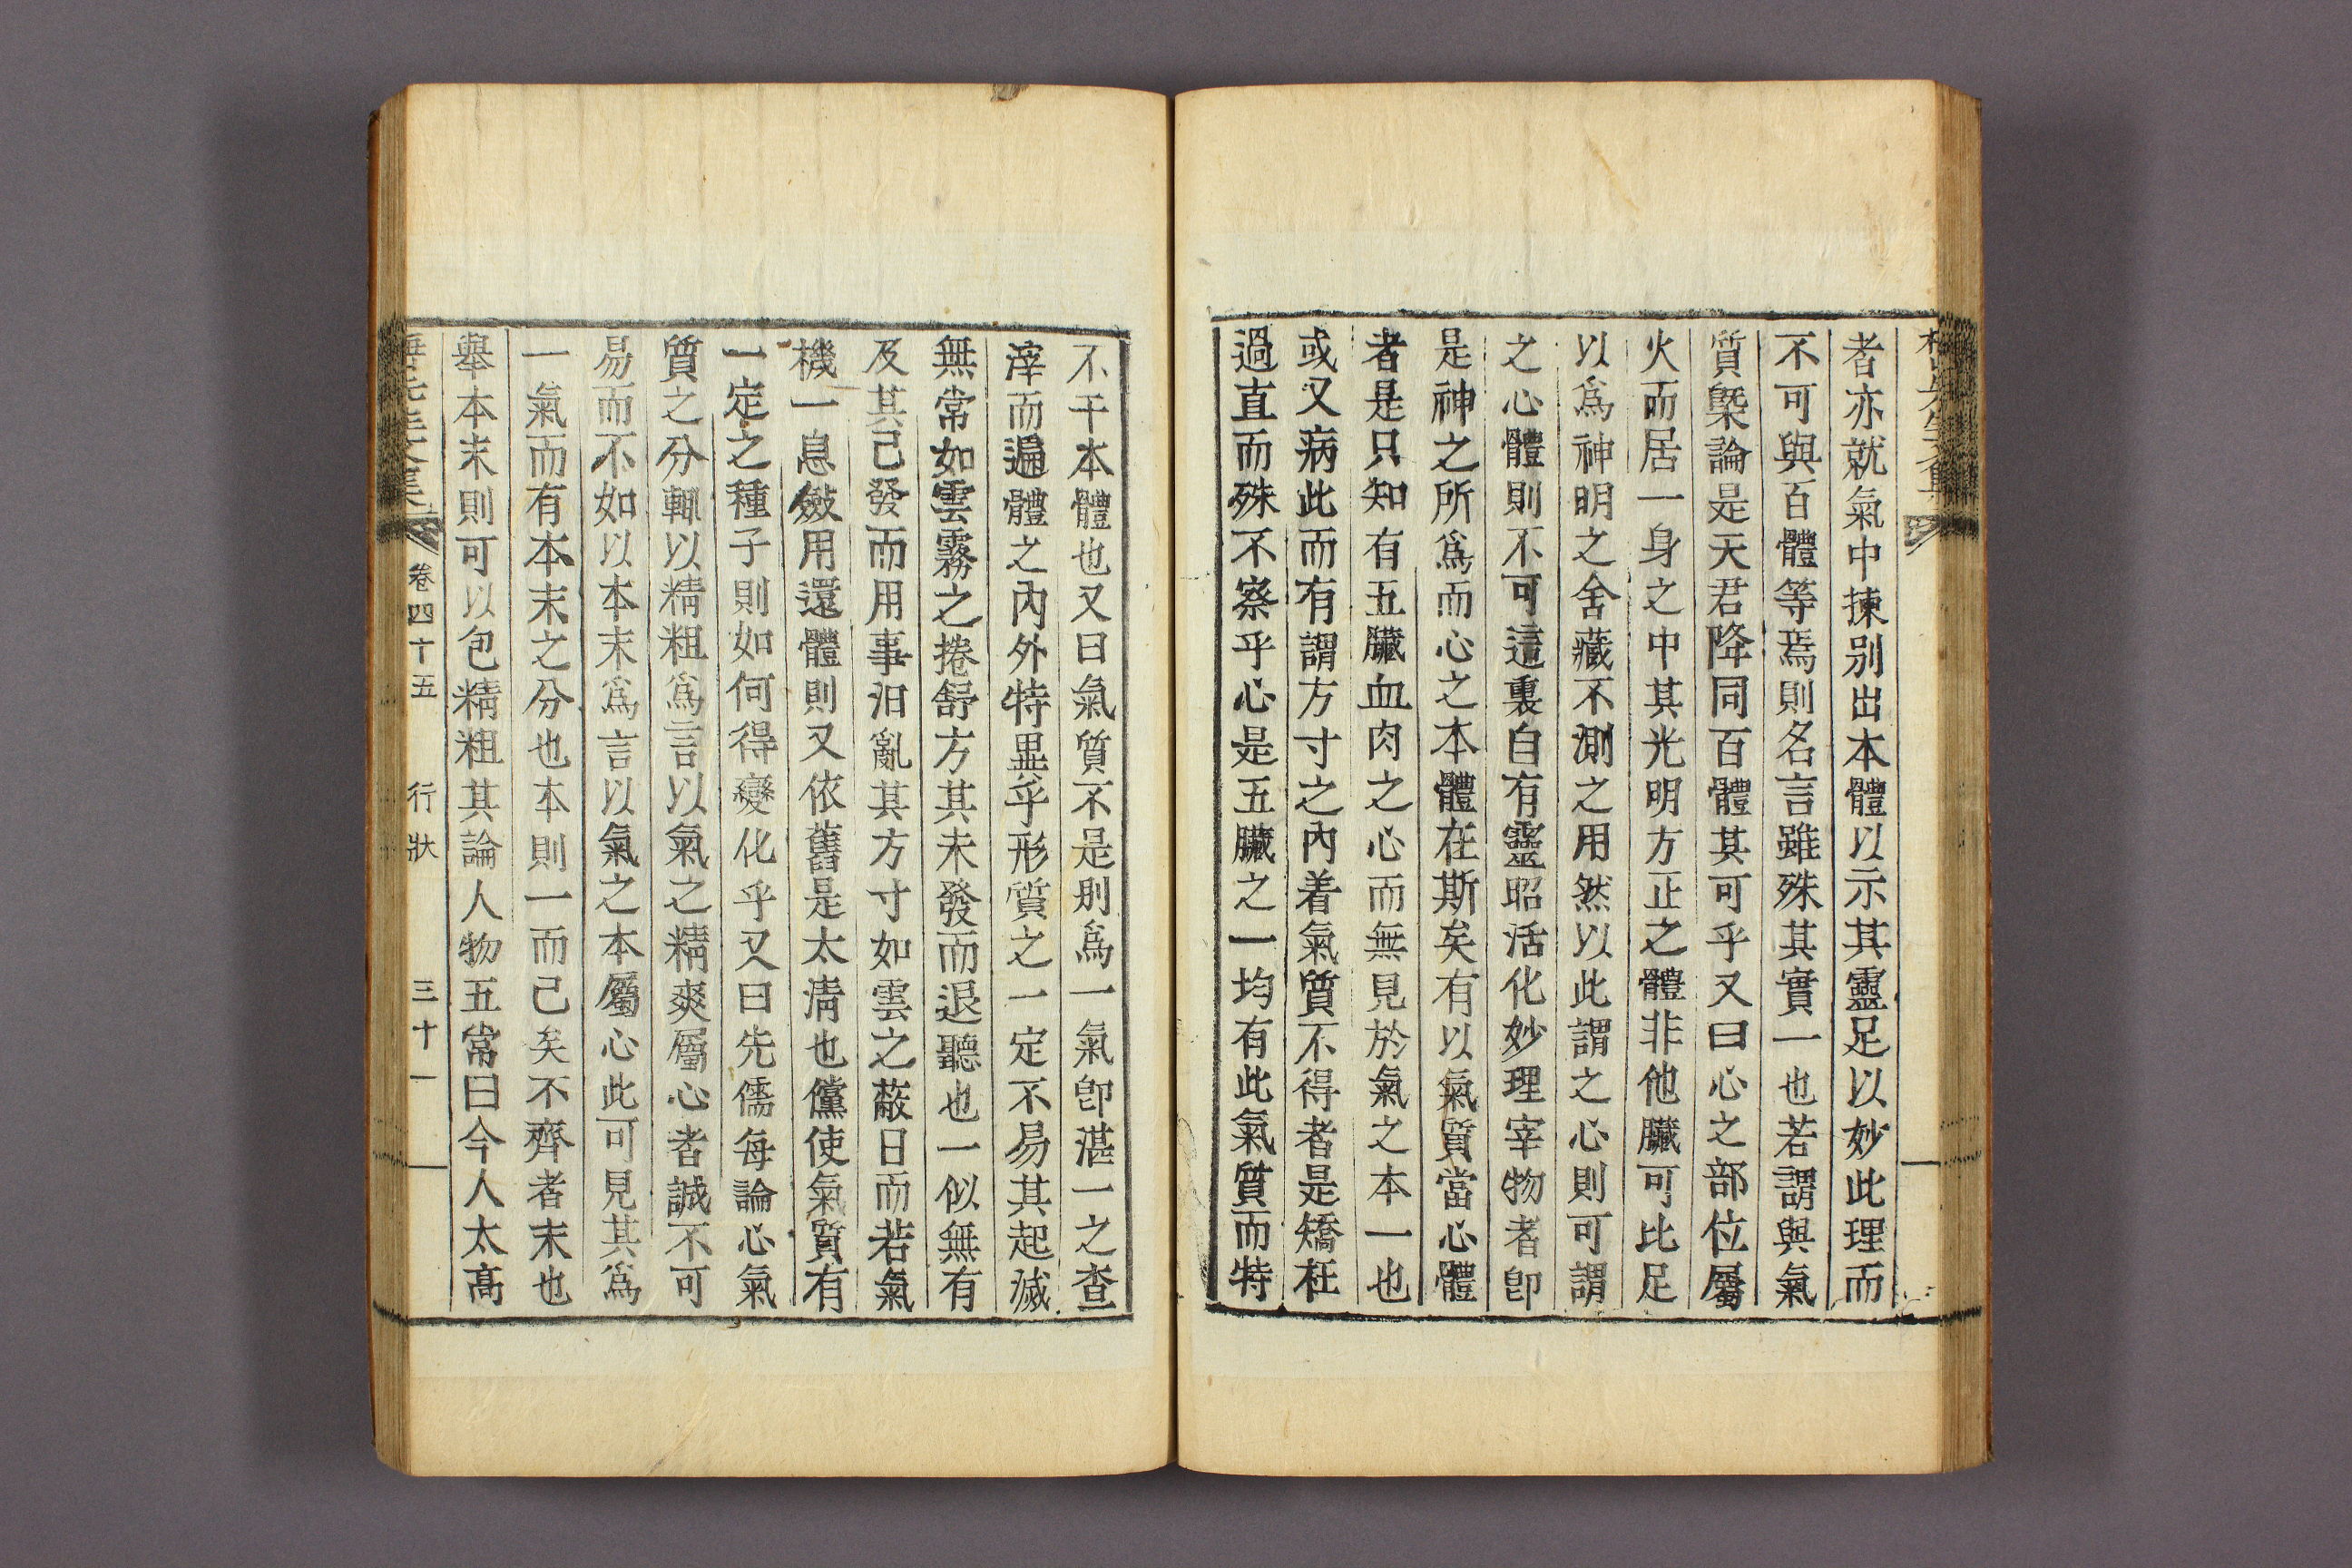 者亦就氣中揀别出本體以示其靈足以妙此理而
不可與百體等焉則名言雖殊其實一也若謂與氣
質槩論是天君降同百體其可乎又曰心之部位屬
火而居一身之中其光明方正之體非他臟可比足
以爲神明之舍藏不測之用然以此謂之心則可謂
之心體則不可這裏自有靈昭活化妙理宰物者卽
是神之所爲而心之本體在斯矣有以氣質當心體
者是只知有五臟血肉之心而無見於氣之本一也
或又病此而有謂方寸之內着氣質不得者是矯枉
過直而殊不察乎心是五臟之一均有此氣質而特
不干本體也又曰氣質不是別爲一氣卽湛一之查
滓而遍體之內外特異乎形質之一定不易其起滅
無常如雲霧之捲舒方其未發而退聽也一似無有
及其已發而用事汨亂其方寸如雲之蔽日而若氣
機一息斂用還體則又依舊是太淸也儻使氣質有
一定之種子則如何得變化乎又曰先儒每論心氣
質之分輒以精粗爲言以氣之精爽屬心者誠不可
易而不如以本末爲言以氣之本屬心此可見其爲
一氣而有本末之分也本則一而已矣不齊者末也
擧本末則可以包精粗其論人物五常曰今人太高
卷四十五 行狀 三十一